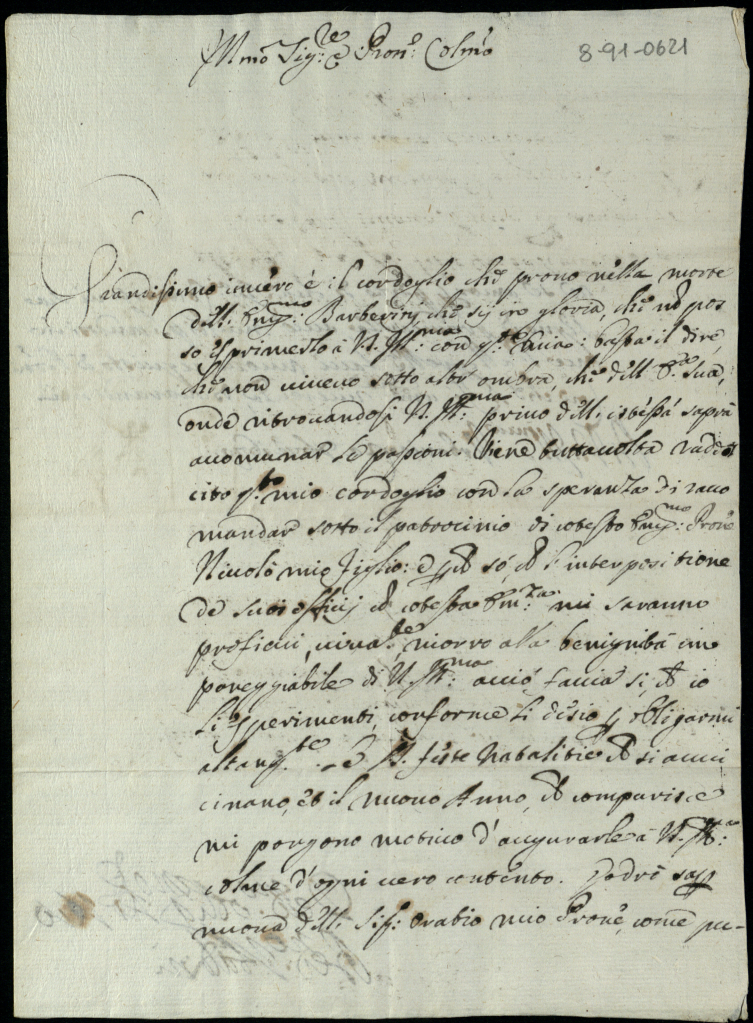 Ill.mo Sig.re e Pron. Colmo
8-91-0621
Grandissimo invero è il cordoglio che provo nella morte
dell' Em.mo Barberinj che sij in gloria, che nõ pos
so esprimerlo à V. Ill.ma con q.ta mia: basta il dire,
che non vivevo sotto altr' ombra, che dell' E. Sua,
onde ritrovandosi V. Ill.ma privo dell' istessa saprà
accomunar le passioni. Viene tuttavolta
cito q.to mio cordoglio con la speranza di racco
mandar sotto il patrocinio di cotesto Em.mo Prone
Nicolò mio figlio: e só, ch l'interpositione
de suoi officij cõ cotesta Em.za mi saranno
proficui, ricorro alla benignità im
pareggiabile di V. Ill.ma acciò faccia sì, ch io
li esperimenti, conforme li desio p obligarmi
altam.te. Le S. feste Natalitie ch si avvi
cinano, et il nuovo Anno, ch comparisce
mi porgono motivo d'augurarle à V. Ill.ma
colme d'ogni vero contento. Godrò sap
nuova dell' Sig. Oratio mio Prone, come pu-